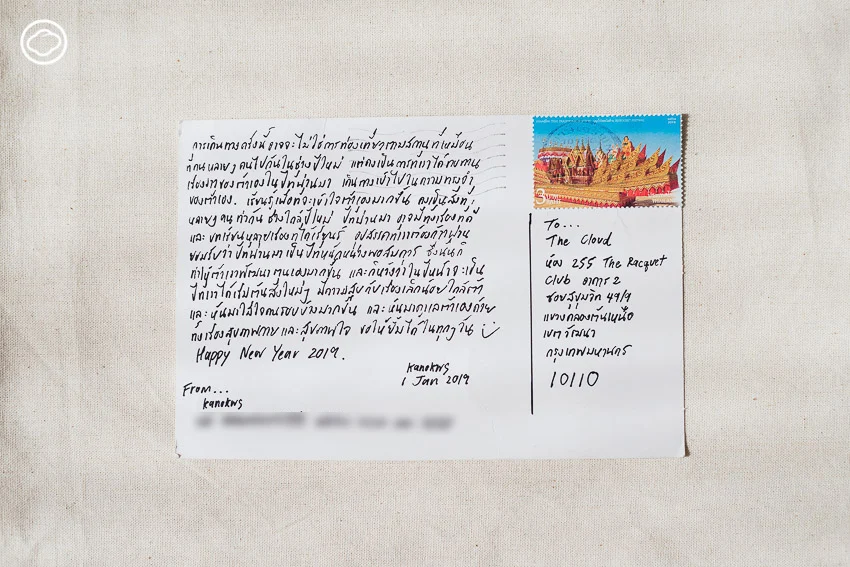 การเดินทางครั้งนี้ อาจจะไม่ใช่การท่องเที่ยวตามสถานที่เหมือน
ที่คนหลายๆ คนไปกันในช่วงปีใหม่ แต่คงเป็นการที่เราได้
เรื่องราวของตัวเองในปีที่ผ่านมา เดินทางเข้าไปในความทรงจำ
ของตัวเอง. เรียนรู้เพื่อที่จะเข้าใจตัวเองมากขึ้น คงเป็นสิ่งที่
หลายๆ คน ทำกัน ช่วงใกล้ปีใหม่ ปีที่ผ่านมา อาจมีทั้งเรื่องที่ดี
และ บทเรียนหลายเรื่องที่ได้เรียนรู้ อุปสรรคที่เราต้องก้าวผ่าน
ยอมรับว่า ปีที่ผ่านมาเป็นปีที่หนักหน่วงพอสมควร ซึ่งนั่นก็
ทำให้ตัวเราพัฒนาตนเองมากขึ้น และก็หวังว่าในปีหน้าจะเป็น
ปีที่เราได้เริ่มต้นสิ่งใหม่ๆ มีความสุขกับเรื่องเล็กน้อยใกล้ตัว
และหันมาใส่ใจคนรอบข้างมากขึ้น และหันมาดูแลตัวเองด้วย
ทั้งเรื่องสุขภาพกาย และสุขภาพใจ ขอให้ยิ้มได้ในทุกๆ วัน
Happy New Year 2019.
Kanokws
1 Jan 2019
From...
Kanokws
3
To...
The Cloud
ห้อง 255 The Racquet
Club อาคาร 2
ซอยสุขุมวิท 49/9
แขวงคลองตันเหนือ
เขตวัฒนา
กรุงเทพมหานคร
10110